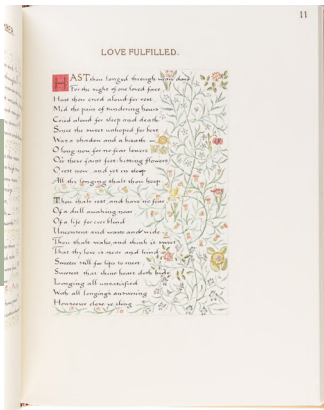 11
LOVE FULFILLED.
HAST thou longed through weary days
For the sight of one loved face
Hast thou cried aloud for rest
Mid the pain of sundering hours
Cried aloud for sleep and death
Since the sweet unhoped for best
Was a shadow and a breath
O long now for no fear lowers
O'er these faint feet-kissing flowers
O rest now and yet in sleep
All thy longing shalt thou keep
Thou shalt rest and have no fear
Of a dull awaking near
Of a life for ever blind
Uncontent and waste and wide
Thou shalt wake and think it sweet
That thy love is near and kind
Sweeter still for lips to meet
Sweetest that thine heart doth hide
Longing all unsatisfied
With all longing's answering
Howsoever close ye cling